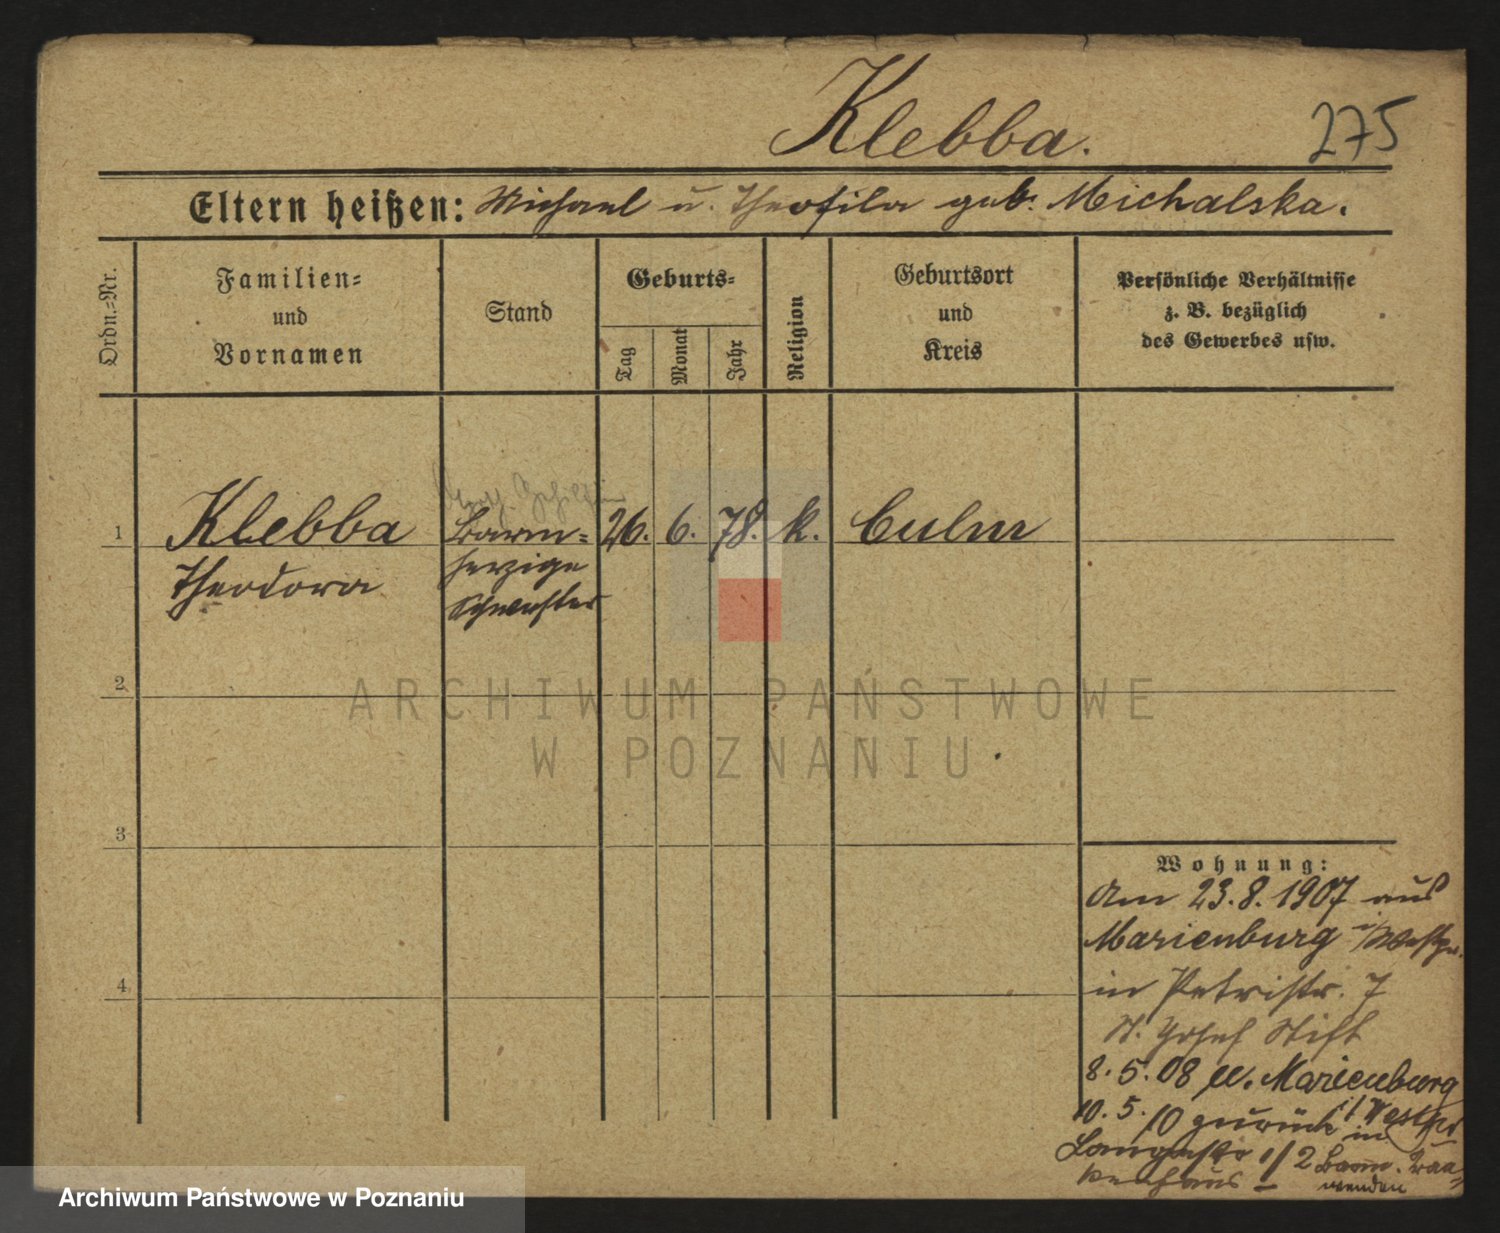 Klebba.
275
Eltern heißen: Michael u. Theofila geb. Michalska.
Ordn.-Nr.
Familien-
und
Vornamen
Stand
Geburts-
Tag
Monat
Jahr
Religion
Geburtsort
und
Kreis
Persönliche Verhältnisse
z. B. bezüglich
des Gewerbes usw.
1
Klebba
Theodora
Barm-
herzige
Schwester
26. 6. 78. k. Culm
2
3
4
Wohnung:
Am 23.8.1907 aus
Marienburg i/Westpr.
in Petristr. 7
St. Josef Stift
8.5.08 n. Marienburg
i/Westpr
10.5.10 zurück in
Langestr 1/2
ARCHIWUM PAŃSTWOWE
W POZNANIU
Archiwum Państwowe w Poznaniu